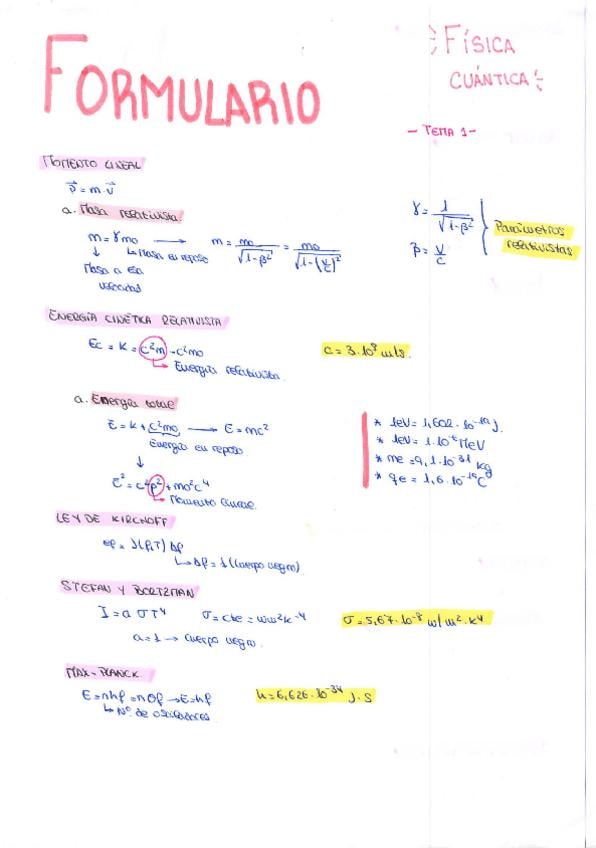 FORMULARIO
FÍSICA
CUÁNTICA
- TEMA 1 -
MOMENTO LINEAL
p⃗ = m · v⃗
a. Masa relativista
m = γ m₀ → m = m₀/√(1-β²) = m₀/√(1-(v/c)²)
↳ Masa en reposo
↓
Masa a esa
velocidad
γ = 1/√(1-β²)
β = v/c
Parámetros
relativistas
ENERGÍA CINÉTICA RELATIVISTA
Ec = K = c²m - c²m₀
↳ Energía relativista.
c = 3·10⁸ m/s.
a. Energía total
E = K + c²m₀ → E = mc²
Energía en reposo
↓
E² = c²p² + m₀²c⁴
↳ Momento lineal.
* 1eV = 1,602 · 10⁻¹⁹ J.
* 1eV = 1·10⁻⁶ MeV
* me = 9,1·10⁻³¹ kg
* qe = 1,6·10⁻¹⁹ C
LEY DE KIRCHOFF
ef = J(f,T) Af
↳ Af = 1 (cuerpo negro)
STEFAN Y BOLTZMAN
I = a σ T⁴ σ = cte = W m⁻² k⁻⁴
σ = 5,67·10⁻⁸ w/m²·k⁴
a = 1 → cuerpo negro.
MAX-PLANCK
E = nhf = nθf → E = hf
↳ Nº de osciladores
h = 6,626·10⁻³⁴ J·S